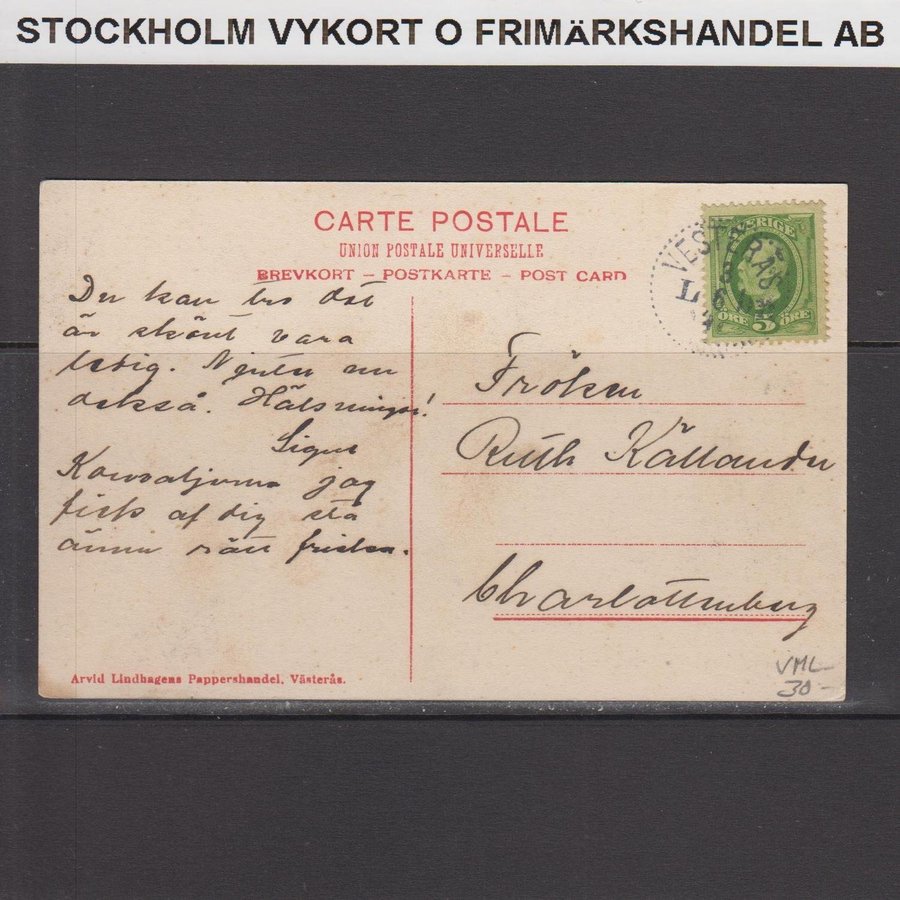 STOCKHOLM VYKORT O FRIMÄRKSHANDEL AB
CARTE POSTALE
UNION POSTALE UNIVERSELLE
BREVKORT – POSTKARTE – POST CARD
SVERIGE
ÖRE 5 ÖRE
VESTERÅS
Du kan tro det
är skönt vara
ledig. Njuter nu
också. Hälsningar!
Signe
jag
fick af dig stå
ännu rätt friska.
Fröken
Ruth Källander
Charlottenberg
Arvid Lindhagens Pappershandel, Västerås.
VML
30-